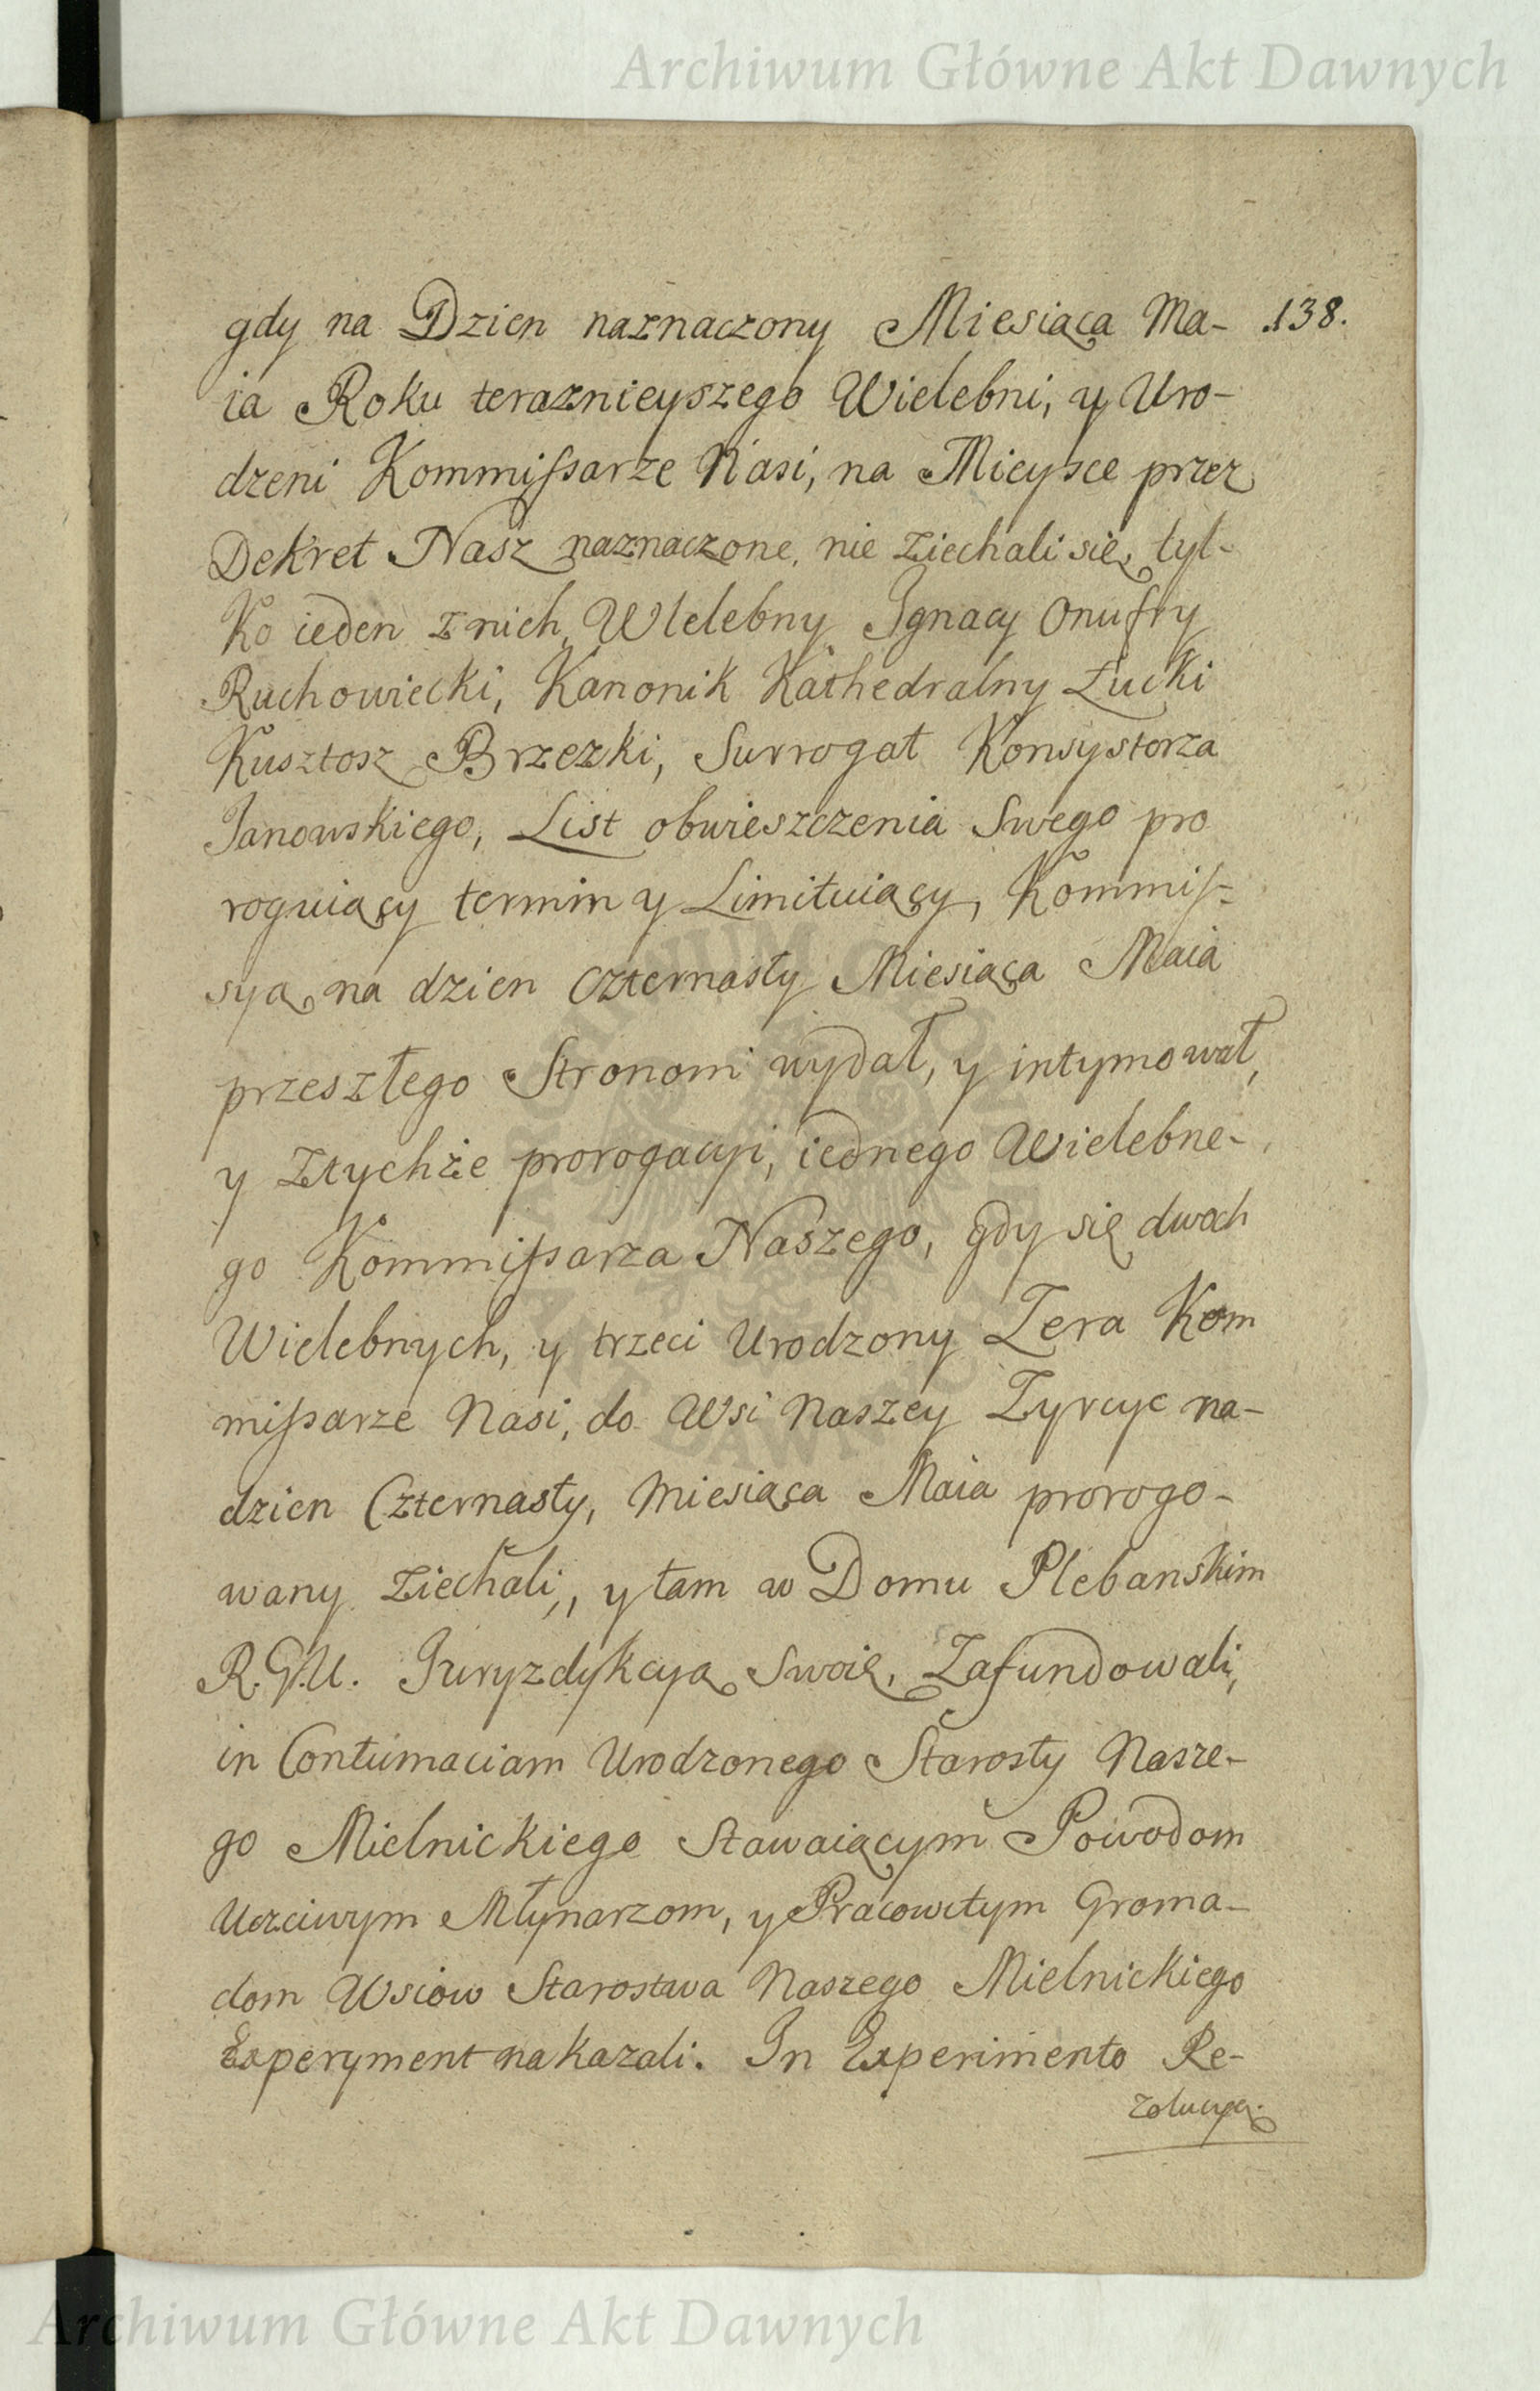 Archiwum Główne Akt Dawnych
138.
gdy na Dzien naznaczony Miesiąca Ma-
ia Roku teraznieyszego Wielebni, y Uro-
dzeni Kommissarze Nasi, na Mieysce przez
Dekret Nasz naznaczone, nie ziechali się, tyl-
Ko ieden z nich, Wielebny Ignacy Onufry
Ruchowiecki, Kanonik Kathedralny Łucki
Kusztosz Brzezki, Surrogat Konsystorza
Janowskiego, List obwieszczenia Swego pro
roguiący termin y Limituiący, Kommis-
syą na dzien Czternasty Miesiąca Maia
przeszłego Stronom wydał, y intymował,
y Ztychże prorogacyi, iednego Wielebne-
go Kommissarza Naszego, gdy się dwoch
Wielebnych, y trzeci Urodzony Zera Kom
missarze Nasi, do Wsi Naszey Zyrcyc na-
dzien Czternasty, Miesiąca Maia prorogo-
wany Ziechali, y tam w Domu Plebanskim
R.G.U. Juryzdykcyą Swoię, Zafundowali,
in Contumaciam Urodzonego Starosty Nasze-
go Mielnickiego Stawaiącym Powodom
Uczciwym Młynarzom, y Pracowitym Groma-
dom Wsiow Starostwa Naszego Mielnickiego
Experyment nakazali. In Experimento Re-
zolucyą.
Archiwum Główne Akt Dawnych